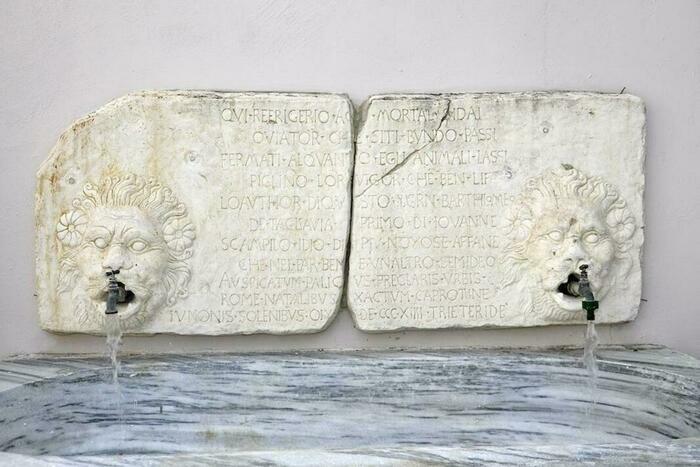 QVI·REFRIGERIO· MORTAL·
OVIATOR· CH SITI·BVNDO·PASSI
FERMATI·ALQVANT O·EGLI·ANIMALI·LASSI
PIGLINO·LOR VIGOR·CHE·BEN·
LOAVTHOR·DIQVESTO·
DE·TAGLIAVIA PRIMO·DI·IOVANNE
SCAMPILO·IDIO·DI NOYOSE·AFFANE
CHE·NEI·FAR·BEN E·VNALTRO·SEMIDEO
AVSPICATVM·PALIC PRECLARIS·VRBIS
ROME·NATALIBVS XACTVM·CAPROTINE
IVNONIS·SOLENIBVS· DE·CCC·XIII·TRIETERIDE